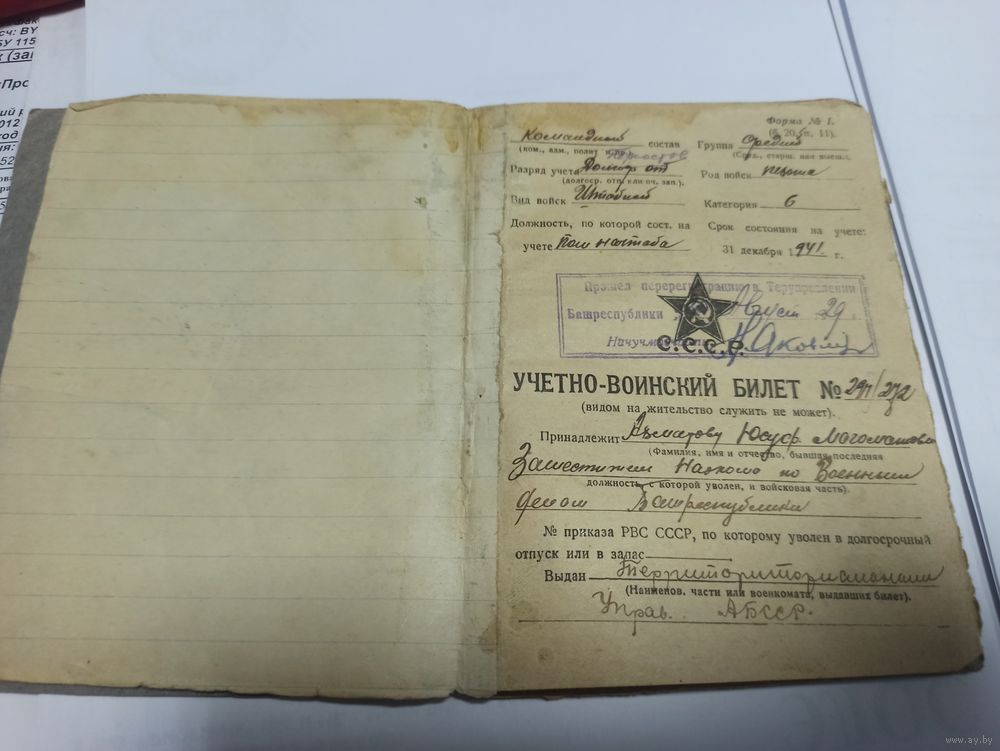 сч: BY
Форма № 1.
Командный состав
Группа Средний
(ком., адм., полит и пр.)
(Сред., старш. или высш.)
Разряд учета Долгоср от
Род войск пехота
(долгоср. отп. или оч. зап.).
Вид войск Штабной
Категория 6
Должность, по которой сост. на
Срок состояния на учете:
учете Пом начштаба
31 декабря 1941 г.
Прошел перерегистрацию в Теруправлении
Башреспублики Август 29 г.
С.С.С.Р.
УЧЕТНО-ВОИНСКИЙ БИЛЕТ №
(видом на жительство служить не может).
Принадлежит Юсуф
(Фамилия, имя и отчество, бывшая последняя
Наркома по Военным
должность, с которой уволен, и войсковая часть).
делам Башреспублики
№ приказа РВС СССР, по которому уволен в долгосрочный
отпуск или в запас
Выдан
(Наименов. части или военкомата, выдавших билет).
Управ. АБССР.
www.ay.by